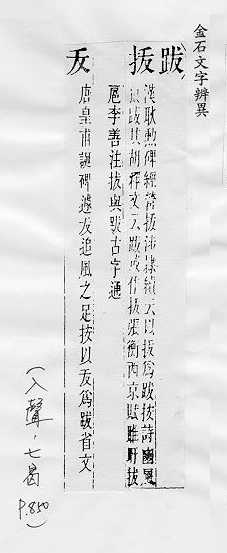 金石文字辨異
跋
拔 漢耿勲碑經營拔涉隸續云以拔爲跋按詩豳風
狼跋其胡釋文云跋或作拔張衡西京賦睢盱拔
扈李善注拔與跋古字通
犮 唐皇甫誕碑遽犮追風之足按以犮爲跋省文
(入聲,七曷
P.850)